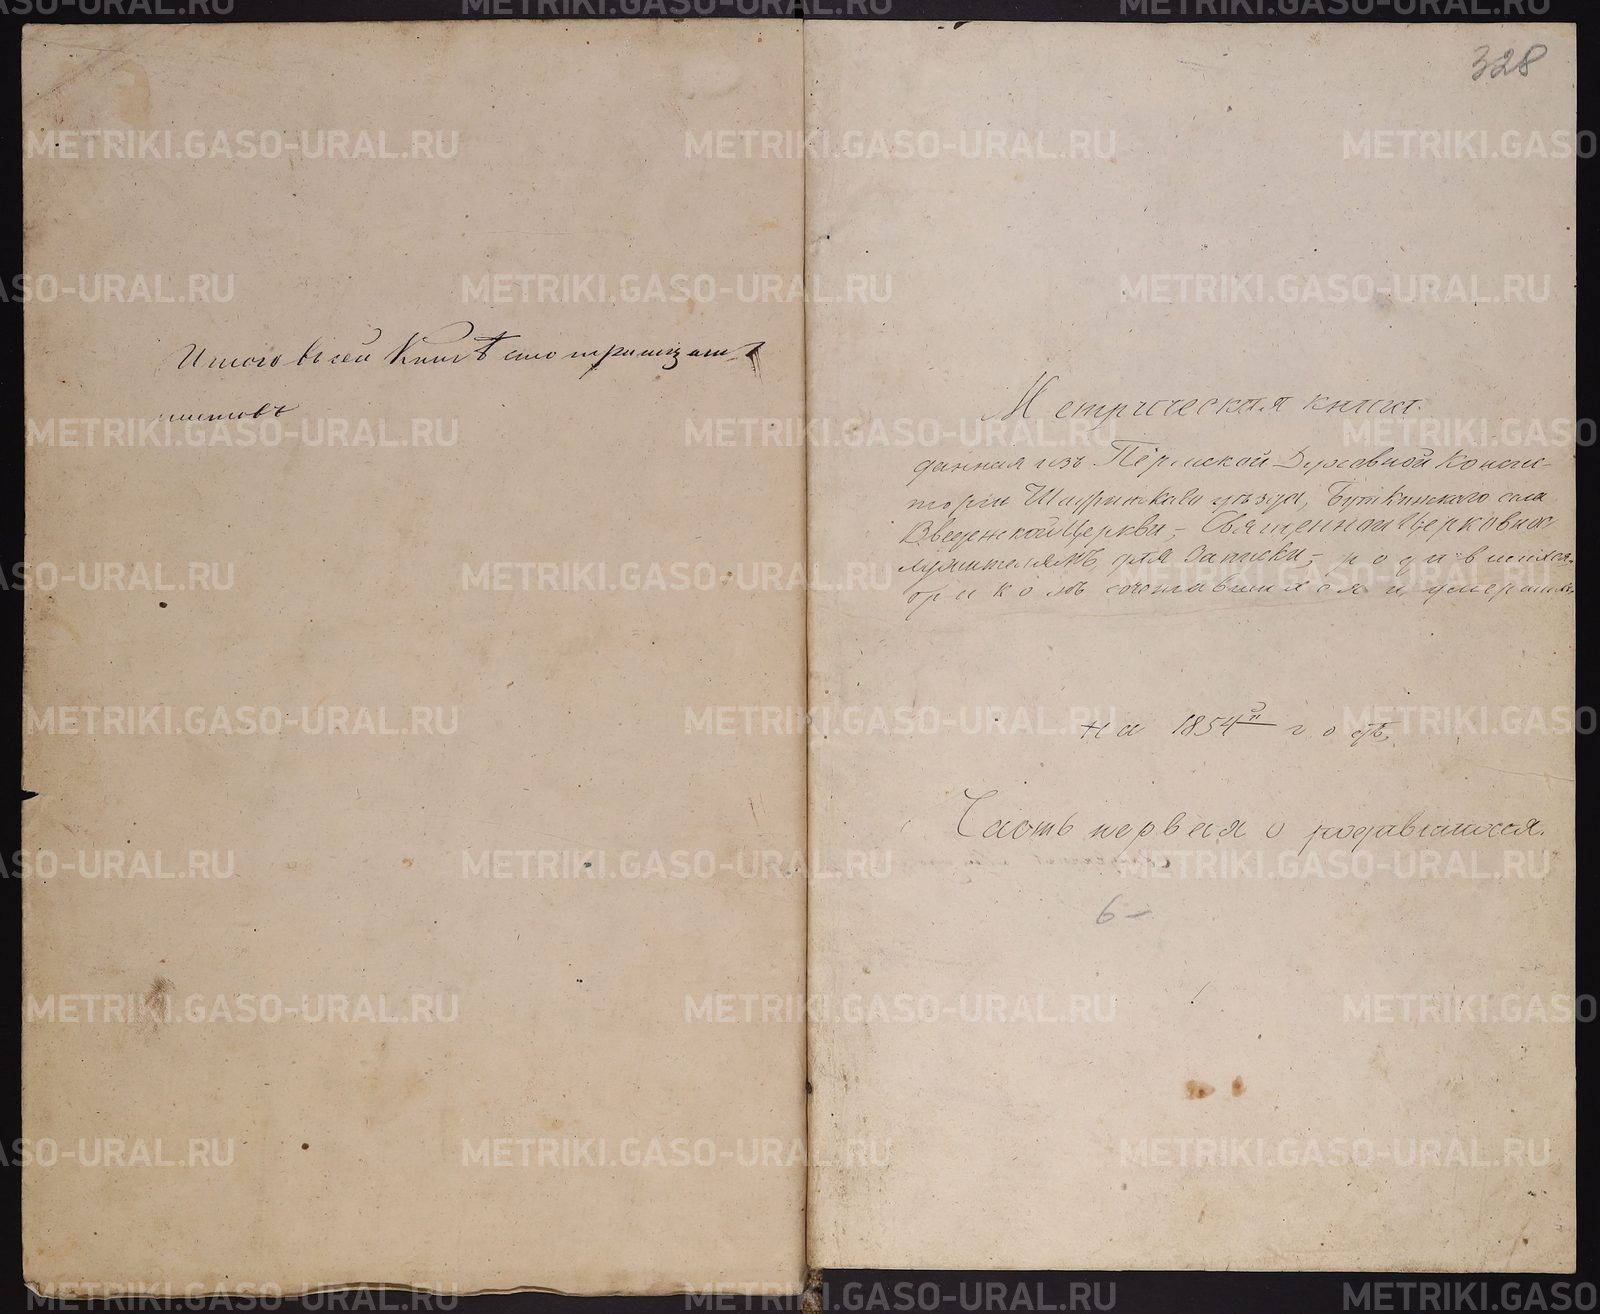 Итого въ сей Книгѣ сто тритцать
листовъ
328
Метрическая книга
данная изъ Пермской Духовной Консис-
торіи Шадринскаго уѣзда, Буткинскаго села
Введенской Церкви, Священноцерковно
служителямъ для записки, родившихся,
бракомъ сочетавшихся и умершихъ
на 1854й годъ.
Часть первая о родившихся.
6 –
METRIKI.GASO-URAL.RU